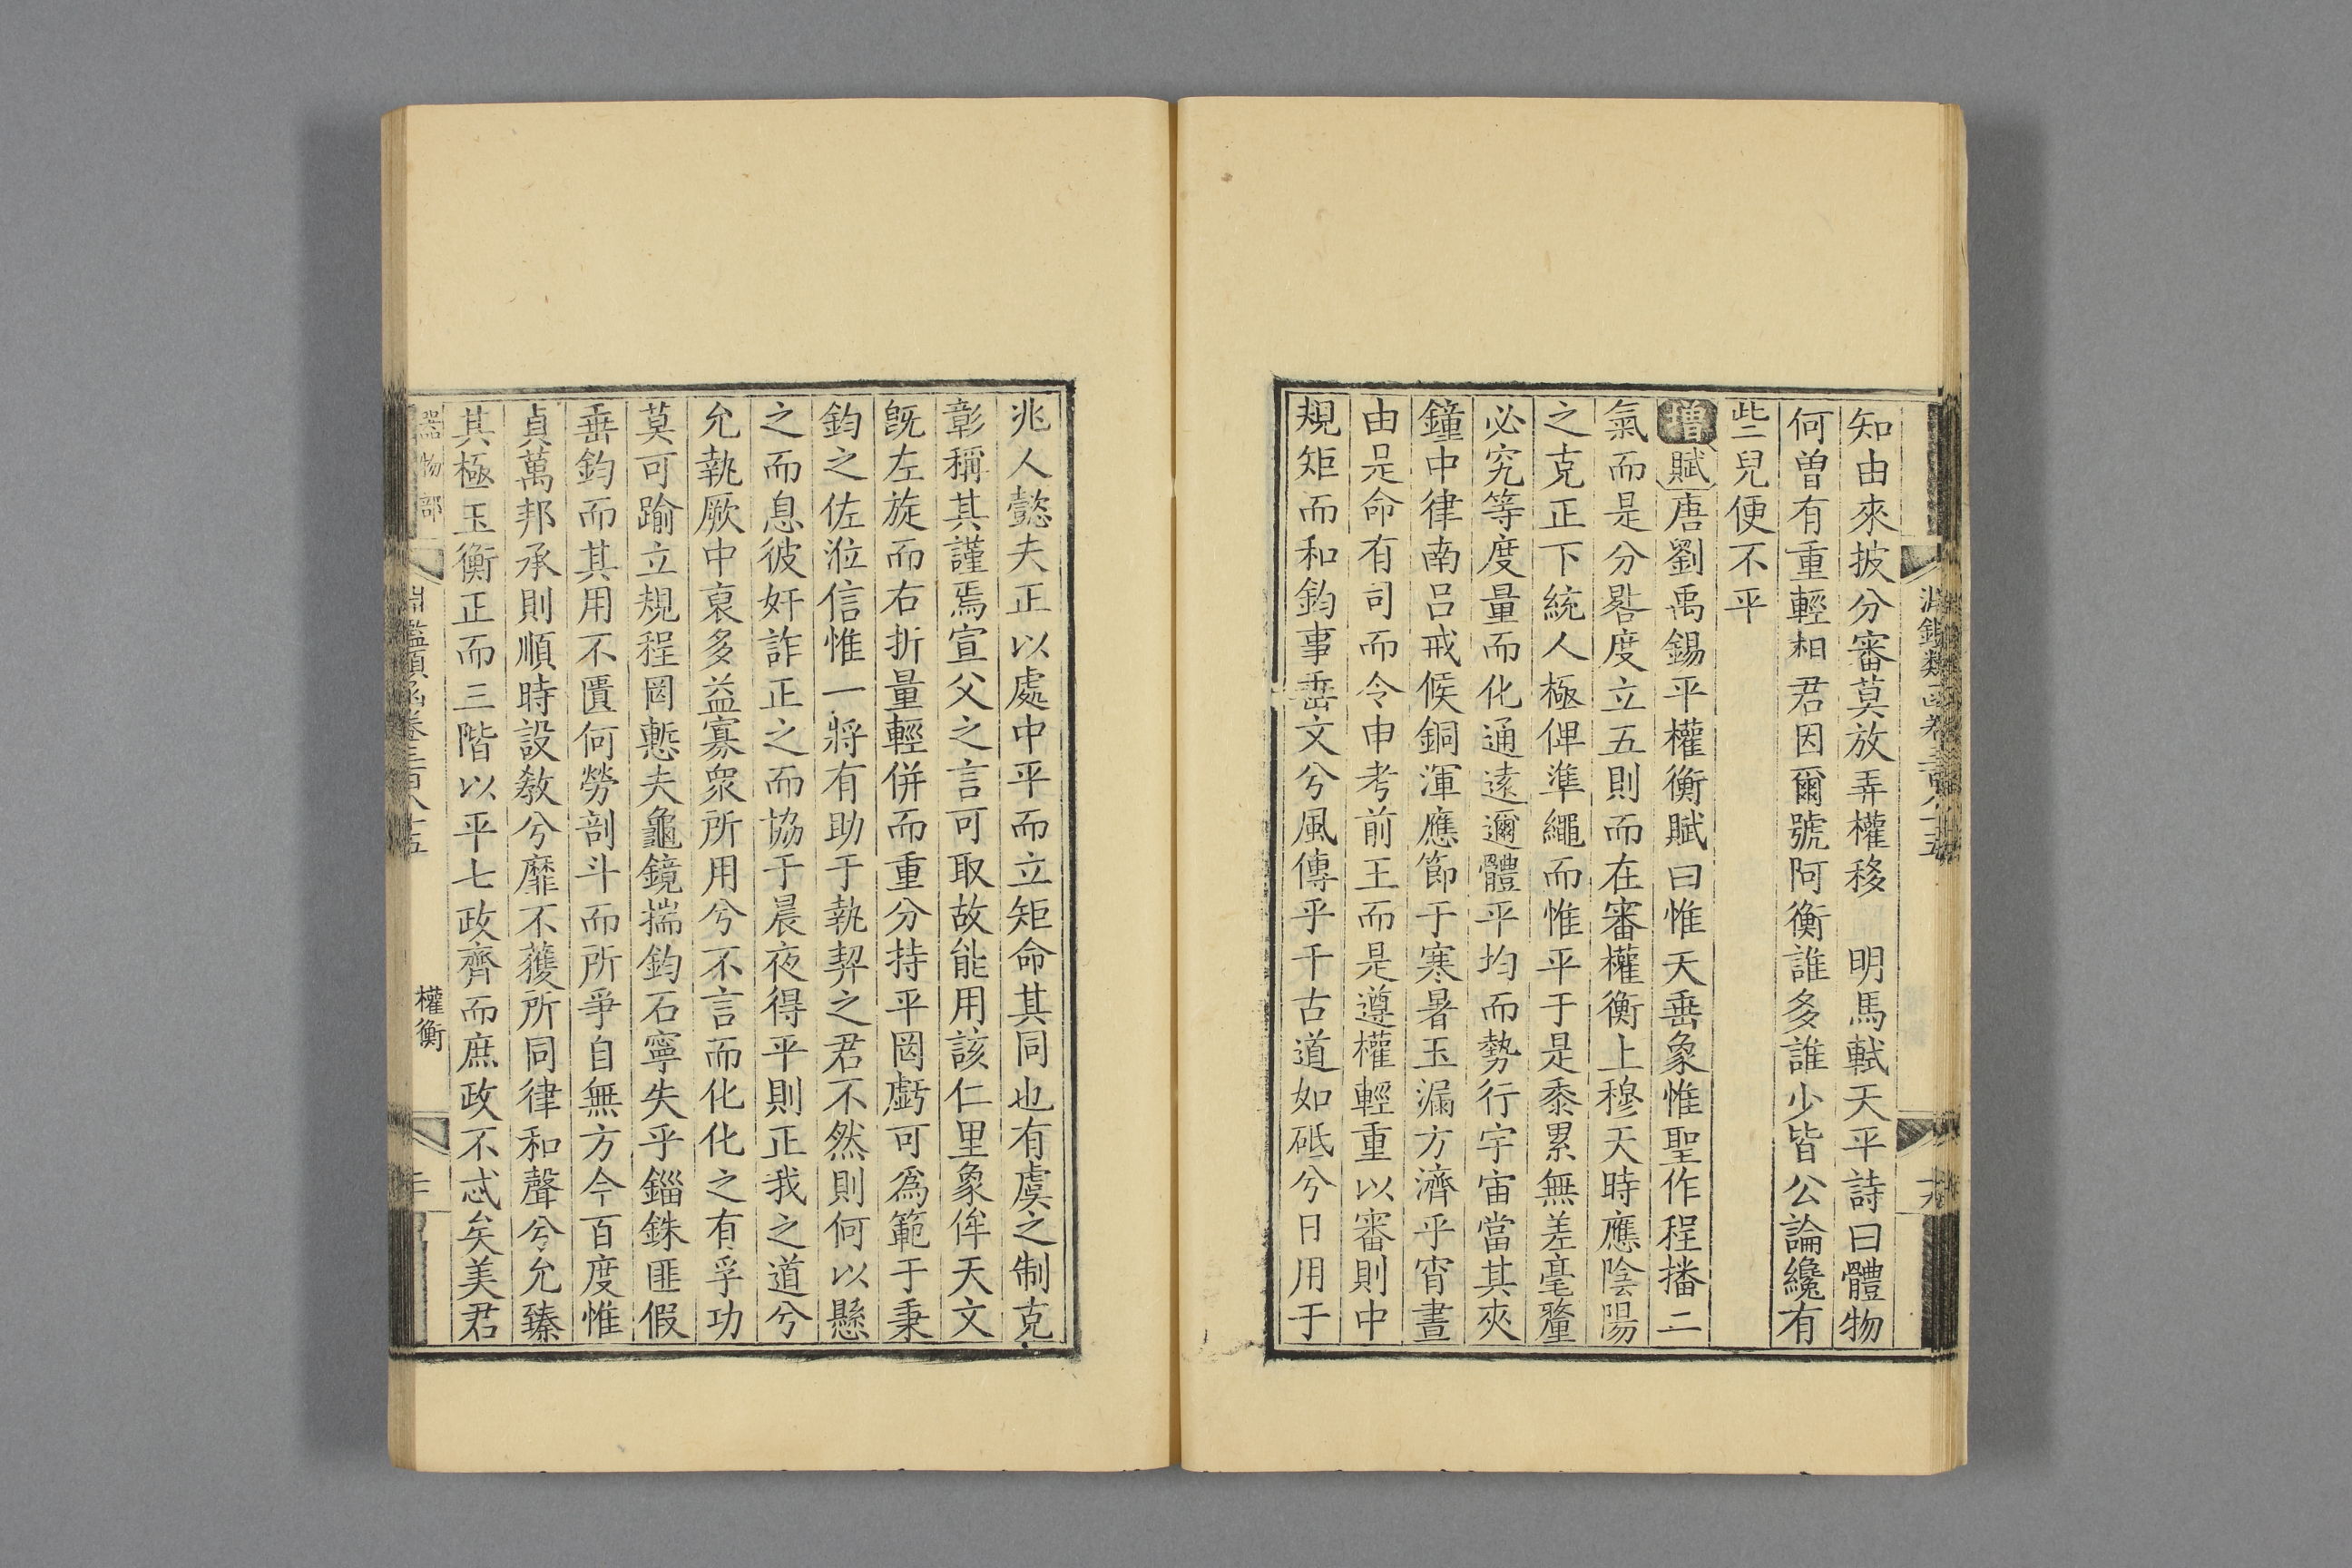 知由來披分審莫放弄權移　明馬軾天平詩曰體物
何曾有重輕相君因爾號阿衡誰多誰少皆公論纔有
些兒便不平
增賦唐劉禹錫平權衡賦曰惟天垂象惟聖作程播二
氣而是分晷度立五則而在審權衡上穆天時應陰陽
之克正下統人極俾準繩而惟平于是黍累無差毫釐
必究等度量而化通遠邇體平均而勢行宇宙當其夾
鐘中律南呂戒候銅渾應節于寒暑玉漏方濟乎宵晝
由是命有司而令申考前王而是遵權輕重以審則中
規矩而和鈞事垂文兮風傳乎千古道如砥兮日用于
兆人懿夫正以處中平而立矩命其同也有虞之制克
彰稱其謹焉宣父之言可取故能用該仁里象侔天文
旣左旋而右折量輕併而重分持平罔虧可為範于秉
鈞之佐涖信惟一將有助于執契之君不然則何以懸
之而息彼奸詐正之而協于晨夜得平則正我之道兮
允執厥中裒多益寡衆所用兮不言而化化之有孚功
莫可踰立規程罔慙夫龜鏡揣鈞石寧失乎錙銖匪假
垂鈞而其用不匱何勞剖斗而所爭自無方今百度惟
貞萬邦承則順時設教兮靡不獲所同律和聲兮允臻
其極玉衡正而三階以平七政齊而庶政不忒矣美君
器物部　淵鑑類函卷三百八十五　權衡